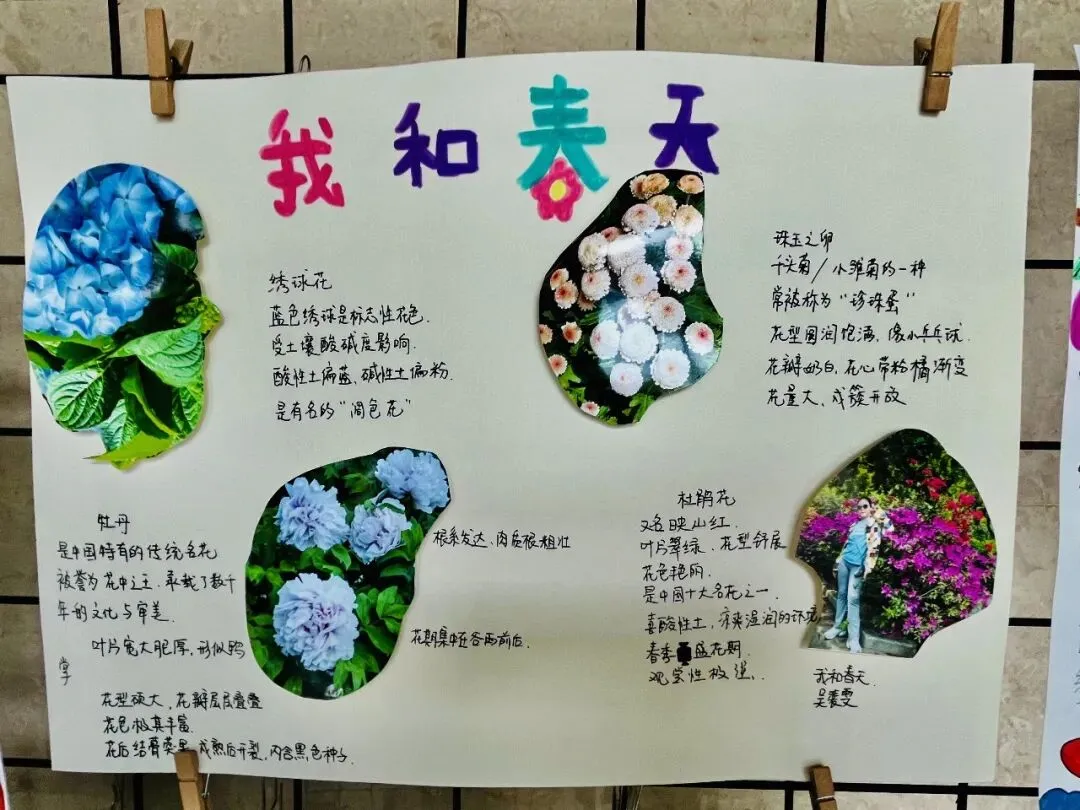 我和春天
绣球花
蓝色绣球是标志性花色.
受土壤酸碱度影响.
酸性土偏蓝、碱性土偏粉.
是有名的“调色花”
珠玉之卵
千头菊/小雏菊的一种
常被称为“珍珠蛋”
花型圆润饱满,像小乒乓球.
花瓣奶白,花心带粉橘渐变
花量大、成簇开放
牡丹
是中国特有的传统名花
被誉为花中之王.承载了数千
年的文化与审美.
叶片宽大肥厚,形似鸭
掌
花型硕大,花瓣层层叠叠
花色极其丰富.
花后结蓇葖果,成熟后开裂,内含黑色种子.
根系发达、肉质根粗壮
花期集中在谷雨前后.
杜鹃花
又名映山红.
叶片翠绿、花型舒展
花色艳丽.
是中国十大名花之一.
喜酸性土,凉爽湿润的环境
春季盛花期.
观赏性极强.
我和春天.
吴